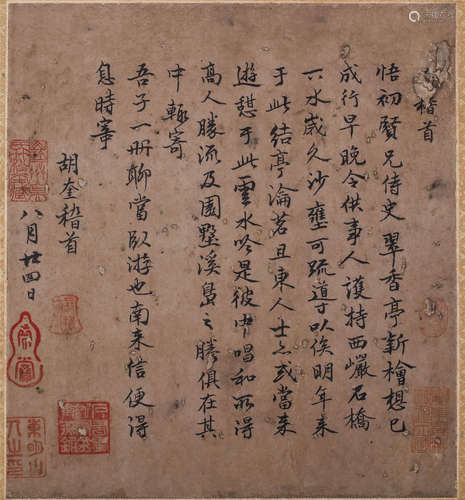 稽首
悟初賢兄侍史翠香亭新檜想已
成行早晚令供事人護持西巖石橋
下水歲久沙壅可疏導以俟明年來
于此結亭瀹茗且東人士亦或當來
遊憇于此雲水吟是彼中唱和所得
高人勝流及園墅溪島之勝俱在其
中輒寄
吾子一冊聊當臥游也南來信便得
息時
胡奎稽首
八月廿四日
東明山人之印